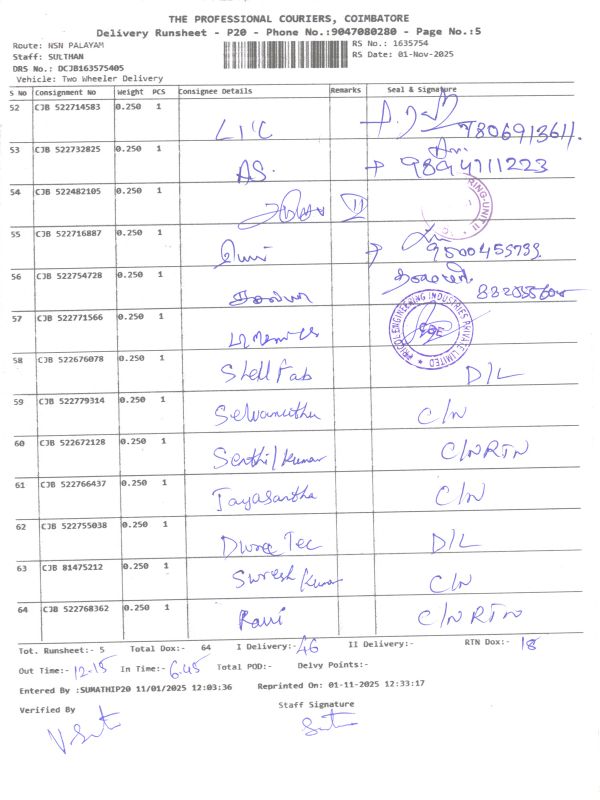 THE PROFESSIONAL COURIERS, COIMBATORE
Delivery Runsheet - P20 - Phone No.:9047080280 - Page No.:5
Route: HSN PALAYAM
RS No.: 1635754
Staff: SULTHAN
RS Date: 01-Nov-2025
DRS No.: DCJB163575405
Vehicle: Two Wheeler Delivery
S No Consignment No Weight PCS Consignee Details Remarks Seal & Signature
52 CJB 522714583 0.250 1 LIC 7806913611.
53 CJB 522732825 0.250 1 AS. 9894711223
54 CJB 522482105 0.250 1 II RING-UNIT II
55 CJB 522716887 0.250 1 9500455739
56 CJB 522754728 0.250 1
57 CJB 522771566 0.250 1 PRICOL ENGINEERING INDUSTRIES PRIVATE LIMITED
58 CJB 522676078 0.250 1 Shell Fab D/L
59 CJB 522779314 0.250 1 Selvamuthu C/N
60 CJB 522672128 0.250 1 Senthil kumar C/N RTN
61 CJB 522766437 0.250 1 Jayasantha C/N
62 CJB 522755038 0.250 1 Tec D/L
63 CJB 81475212 0.250 1 Suresh kumar C/N
64 CJB 522768362 0.250 1 Ravi C/N RTN
Tot. Runsheet:- 5 Total Dox:- 64 I Delivery:- 46 II Delivery:- RTN Dox:- 18
Out Time:- 12-15 In Time:- 6.45 Total POD:- Delvy Points:-
Entered By :SUMATHIP20 11/01/2025 12:03:36 Reprinted On: 01-11-2025 12:33:17
Verified By Staff Signature